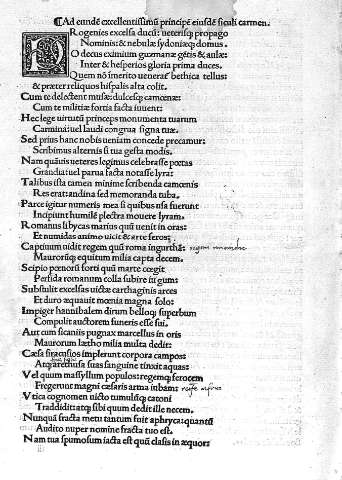 ¶Ad eundē excellentissimū principē eiusdē siculi carmen.
PRogenies excelsa ducū: ueterisq; propago
Nominis: & nebulæ sydoniæq; domus.
O decus eximium guzmanæ gētis & aulæ:
Inter & hesperios gloria prima duces.
Quem nō imerito ueneraī bethica tellus:
& præter reliquos hispalis alta colit.
Cum te delectent musæ: dulcesq; camœnæ:
Cum te militiæ fortia facta iuuent:
Hec lege uirtutis princeps monumenta tuarum
Carmina: uel laudi congrua signa tuæ.
Sed prius hanc nobis ueniam concede precamur:
Scribimus alternis si tua gesta modis.
Nam quāuis ueteres legimus celebrasse poetas
Grandia: uel parua facta notasse lyra:
Talibus ista tamen minime scribenda camœnis
Res erat: andina sed memoranda tuba.
Parce igitur numeris mea si quibus usa fuerunt
Incipiunt humilē plectra mouere lyram.
Romanus libycas marius quū uenit in oras:
Et numidas animo uicit & arte feros:
Captiuum uidit regem quū roma iugurthā:
Maurorūq; equitum milia capta decem.
Scipio pœnorū forti quū marte coegit
Perfida romanum colla subire iugum:
Substulit excelsas uictæ carthaginis arces
Et duro æquauit mœnia magna solo:
Impiger hannibalem dirum belloq; superbum
Compulit auctorem funeris esse sui.
Aut cum sicaniis pugnax marcellus in oris
Maurorum lætho milia multa dedit:
Cæsa siracusios implerunt corpora campos:
Atq; arethusa suas sanguine tinxit aquas:
Vel quum massyllum populos: regemq; ferocem
Fregerunt magni cæsaris arma iubam:
Vtica cognomen uicto tumulūq; catoni
Traddidit: atq; sibi quum dedit ille necem.
Nunquā fracta metu tantum fuit aphryca: quantū
Audito nuper nomine fracta tuo est.
Nam tua spumosum iacta est quū classis in æquor: